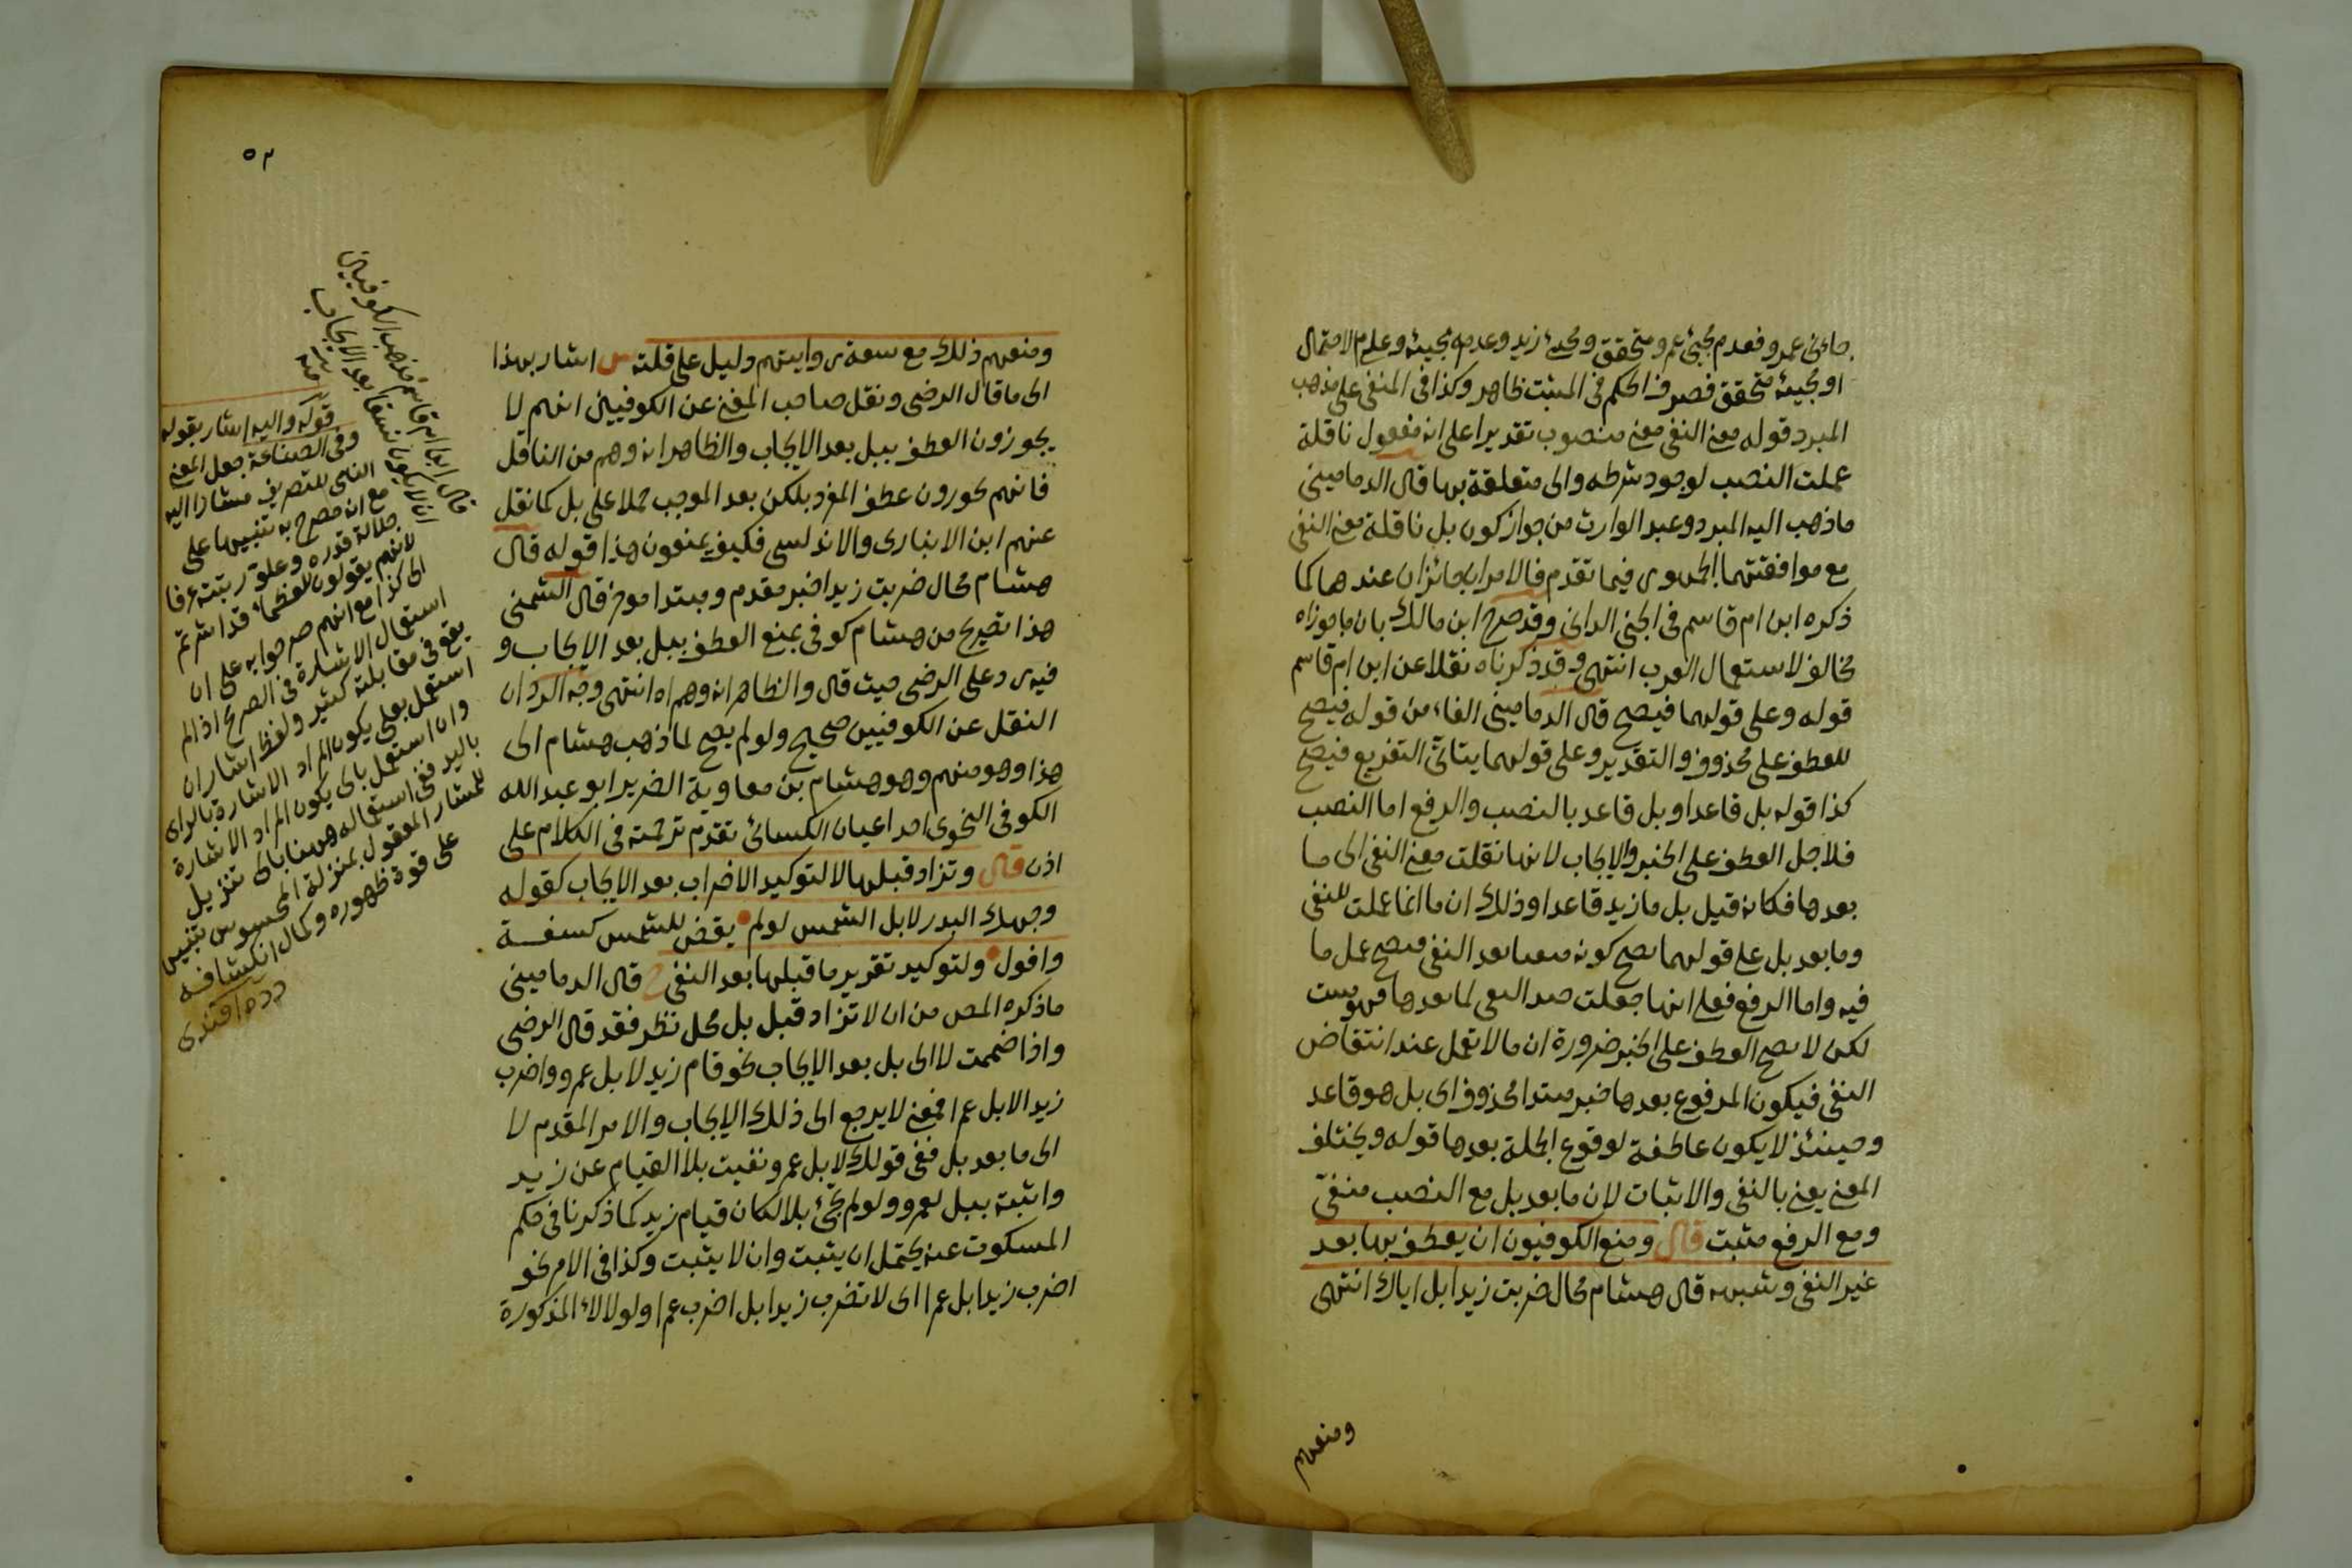 جاءنى عمرو فعدم مجئ عمرو متحقق ومجئ زيد وعدم مجيئه وعلم الاحتمال
او مجيئه متحقق فصرف الحكم فى المثبت ظاهر وكذا فى المنفى على مذهب
المبرد قوله معنى النفى معنى منصوب تقديرا على انه مفعول ناقلة
عملت النصب لوجود شرطه والى متعلقة بها قال الدمامينى
ماذهب اليه المبرد وعبد الوارث من جواز كون بل ناقلة معنى النفى
مع موافقتهما الجمهور فيما تقدم فالامران جائزان عندهما كما
ذكره ابن ام قاسم فى الجنى الدانى وقد صرح ابن مالك بان ما جوزاه
مخالف لاستعمال العرب انتهى وقد ذكرناه نقلا عن ابن ام قاسم
قوله وعلى قولهما فيصح قال الدمامينى الفاء من قوله فيصح
للعطف على محذوف والتقدير وعلى قولهما يتاتى التفريع فيصح
كذا قوله بل قاعدا وبل قاعد بالنصب والرفع اما النصب
فلاجل العطف على الخبر والايجاب لانها نقلت معنى النفى الى ما
بعدها فكانه قيل بل ما زيد قاعدا وذلك ان ما انما عملت للنفى
وما بعد بل على قولهما يصح كونه منفيا بعد النفى فيصح عمل ما
فيه واما الرفع فعلى انها جعلت ضد النفى لما بعدها فهو مثبت
لكن لا يصح العطف على الخبر ضرورة ان ما لا تعمل عند انتقاض
النفى فيكون المرفوع بعدها خبر مبتدا محذوف اى بل هو قاعد
وحينئذ لا يكون عاطفة لوقوع الجملة بعدها قوله ويختلف
المعنى يعنى بالنفى والاثبات لان ما بعد بل مع النصب منفى
ومع الرفع مثبت قال ومنع الكوفيون ان يعطف بها بعد
غير النفى وشبهه قال هشام محال ضربت زيدا بل اياك انتهى
ومنعهم
٥٣
ومنعهم ذلك مع سعة روايتهم دليل على قلته س اشار بهذا
الى ما قال الرضى ونقل صاحب المغنى عن الكوفيين انهم لا
يجوزون العطف ببل بعد الايجاب والظاهر انه وهم من الناقل
فانهم يجوزون عطف المفرد بلكن بعد الموجب حملا على بل كما نقل
عنهم ابن الانبارى والاندلسى فكيف يمنعون هذا قوله قال
هشام محال ضربت زيدا خبر مقدم ومبتدا موخر قال الشمنى
هذا تصريح من هشام كوفى بمنع العطف ببل بعد الايجاب و
فيه رد على الرضى حيث قال والظاهر انه وهم اه انتهى وجه الرد ان
النقل عن الكوفيين صحيح ولو لم يصح لما ذهب هشام الى
هذا وهو منهم وهو هشام بن معاوية الضرير ابو عبد الله
الكوفى النحوى احد اعيان الكسائى تقدم ترجمته فى الكلام على
اذن قال وتزاد قبلها لا لتوكيد الاضراب بعد الايجاب كقوله
وجهك البدر لا بل الشمس لو لم يقض للشمس كسفة
وافول ولتوكيد تقرير ما قبلها بعد النفى قال الدمامينى
ما ذكره المص من ان لا تزاد قبل بل محل نظر فقد قال الرضى
واذا ضممت لا الى بل بعد الايجاب نحو قام زيد لا بل عمرو واضرب
زيدا لا بل عمرا فمعنى لا يرجع الى ذلك الايجاب والامر المقدم لا
الى ما بعد بل ففى قولك لا بل عمرو نفيت بلا القيام عن زيد
واثبته ببل لعمرو ولو لم تجئ بلا لكان قيام زيد كما ذكرنا فى حكم
المسكوت عنه يحتمل ان يثبت وان لا يثبت وكذا فى الامر نحو
اضرب زيدا لا بل عمرا اى لا تضرب زيدا بل اضرب عمرا ولولا لاء المذكورة
قال ابن ام قاسم مذهب الكوفيين
ان لا يكون نسقا بعد الايجاب
منه
قوله واليه اشار بقوله
وفى الصناعة جعل المعنى
مشارا اليه
مع انه مصرح به تنبيها على
جلالة قدره وعلو رتبته عرفا
لانهم يقولون للعظماء قد اشرتم
الى كذا مع انهم صرحوا به على ان
استعمال الاشارة فى الصريح اذا لم
يقع فى مقابلته كثير ولفظ اشار ان
استعمل بعلى يكون المراد الاشارة بالراى
وان استعمل بالى يكون المراد الاشارة
باليد ففى استعماله ههنا بالى تنزيل
للمشار المعقول بمنزلة المحسوس تنبيه
على قوة ظهوره وكمال انكشافه
دده افندى